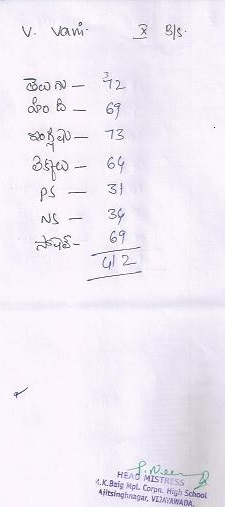 V. Vani. X B/s.
తెలుగు — 72
హిందీ — 69
ఇంగ్లీషు — 73
లెక్కలు — 64
PS — 31
NS — 34
సోషల్ — 69
412
HEAD MISTRESS
A.K.Baig Mpl. Corpn. High School
Ajitsinghnagar, VIJAYAWADA.